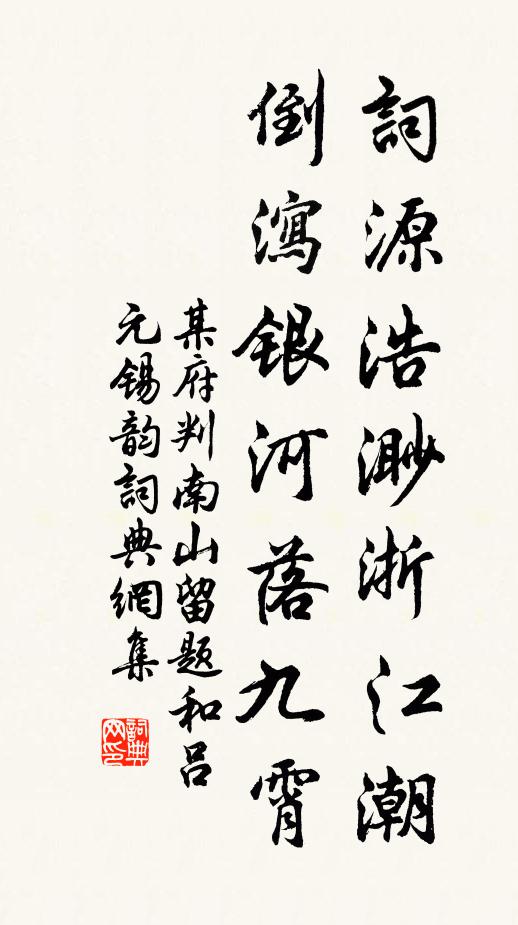 詞源浩渺浙江潮
倒瀉銀河落九霄
某府判南山留題和呂
元錫韵詞典網集
詞典網印